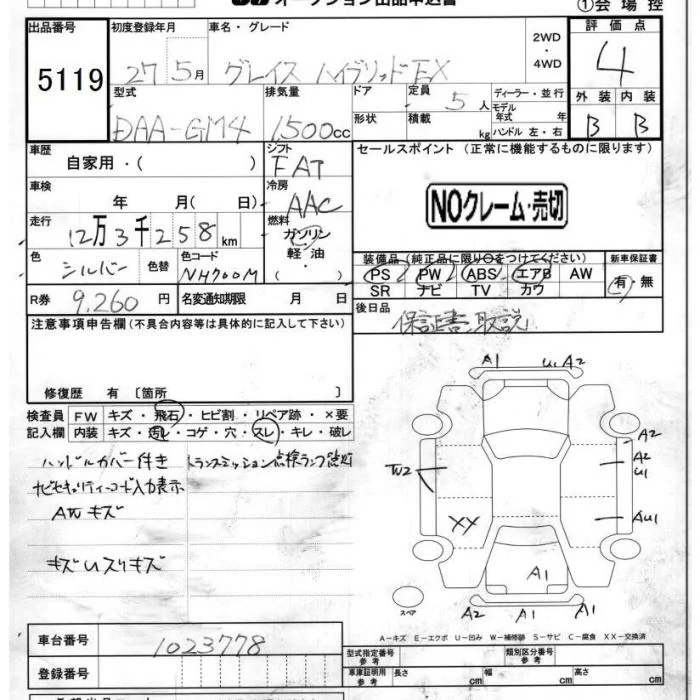 オークション出品申込書 ①会場控
出品番号 初度登録年月 車名・グレード 2WD ・ 4WD 評価点
5119 27 5月 グレイス ハイブリッドEX 4
型式 排気量 ドア 定員 5 人 ディーラー・並行 外装 内装
DAA-GM4 1500cc 形状 積載 kg モデル年式 年 ハンドル 左・右 B B
車歴 自家用・( ) シフト FAT セールスポイント (正常に機能するものに限ります)
車検 年 月( 日) 冷房 AAC NOクレーム・売切
走行 12万3千258km 燃料 ガソリン 軽油 ・( )
色 シルバー 色替 色コード NH700M 装備品(純正品に限り○をつけてください) 新車保証書
PS PW ABS エアB AW 有・無
SR ナビ TV カワ
R券 9,260円 名変通知期限 月 日 後日品
保証書、取説
注意事項申告欄(不具合内容等は具体的に記入して下さい)
修復歴 有 〔箇所 〕
検査員 FW キズ・飛石・ヒビ割・リペア跡・×要
記入欄 内装 キズ・汚レ・コゲ・穴・スレ・キレ・破レ
ハンドルカバー付き トランスミッション点検ランプ点灯
ナビセキュリティーコード入力表示
AW キズ
キズUスリキズ
A1 U1 A2
A2
A2
U1
W2
AU1
XX
A1
スペア
A2 A1 A1
A-キズ E-エクボ U-凹み W-補修跡 S-サビ C-腐食 XX-交換済
車台番号 1023778
登録番号
型式指定番号 参考 類別区分番号 参考
車庫証明用 参考 長さ cm 幅 cm 高さ cm